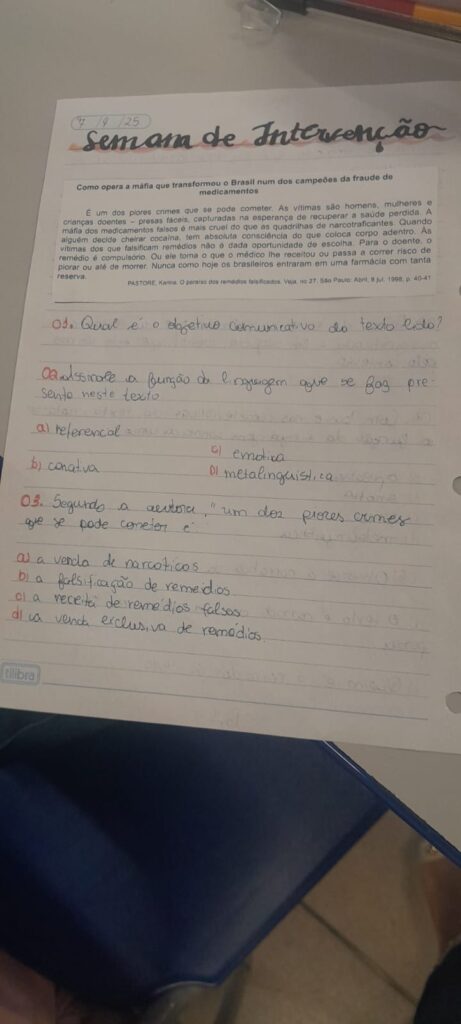 7/4/25
Semana de Intervenção
Como opera a máfia que transformou o Brasil num dos campeões da fraude de
medicamentos
É um dos piores crimes que se pode cometer. As vítimas são homens, mulheres e
crianças doentes – presas fáceis, capturadas na esperança de recuperar a saúde perdida. A
máfia dos medicamentos falsos é mais cruel do que as quadrilhas de narcotraficantes. Quando
alguém decide cheirar cocaína, tem absoluta consciência do que coloca corpo adentro. Às
vítimas dos que falsificam remédios não é dada oportunidade de escolha. Para o doente, o
remédio é compulsório. Ou ele toma o que o médico lhe receitou ou passa a correr risco de
piorar ou até de morrer. Nunca como hoje os brasileiros entraram em uma farmácia com tanta
reserva.
PASTORE, Karina. O paraíso dos remédios falsificados. Veja, nº 27. São Paulo: Abril, 8 jul. 1998, p. 40-41.
01. Qual é o objetivo comunicativo do texto lido?
02. Assinale a função da linguagem que se faz pre-
sente neste texto
a) referencial
c) emotiva
b) conativa
D) metalinguística
03. Segundo a autora, "um dos piores crimes
que se pode cometer é
a) a venda de narcóticos
b) a falsificação de remédios
c) a receita de remédios falsos
d) a venda exclusiva de remédios.
tilibra